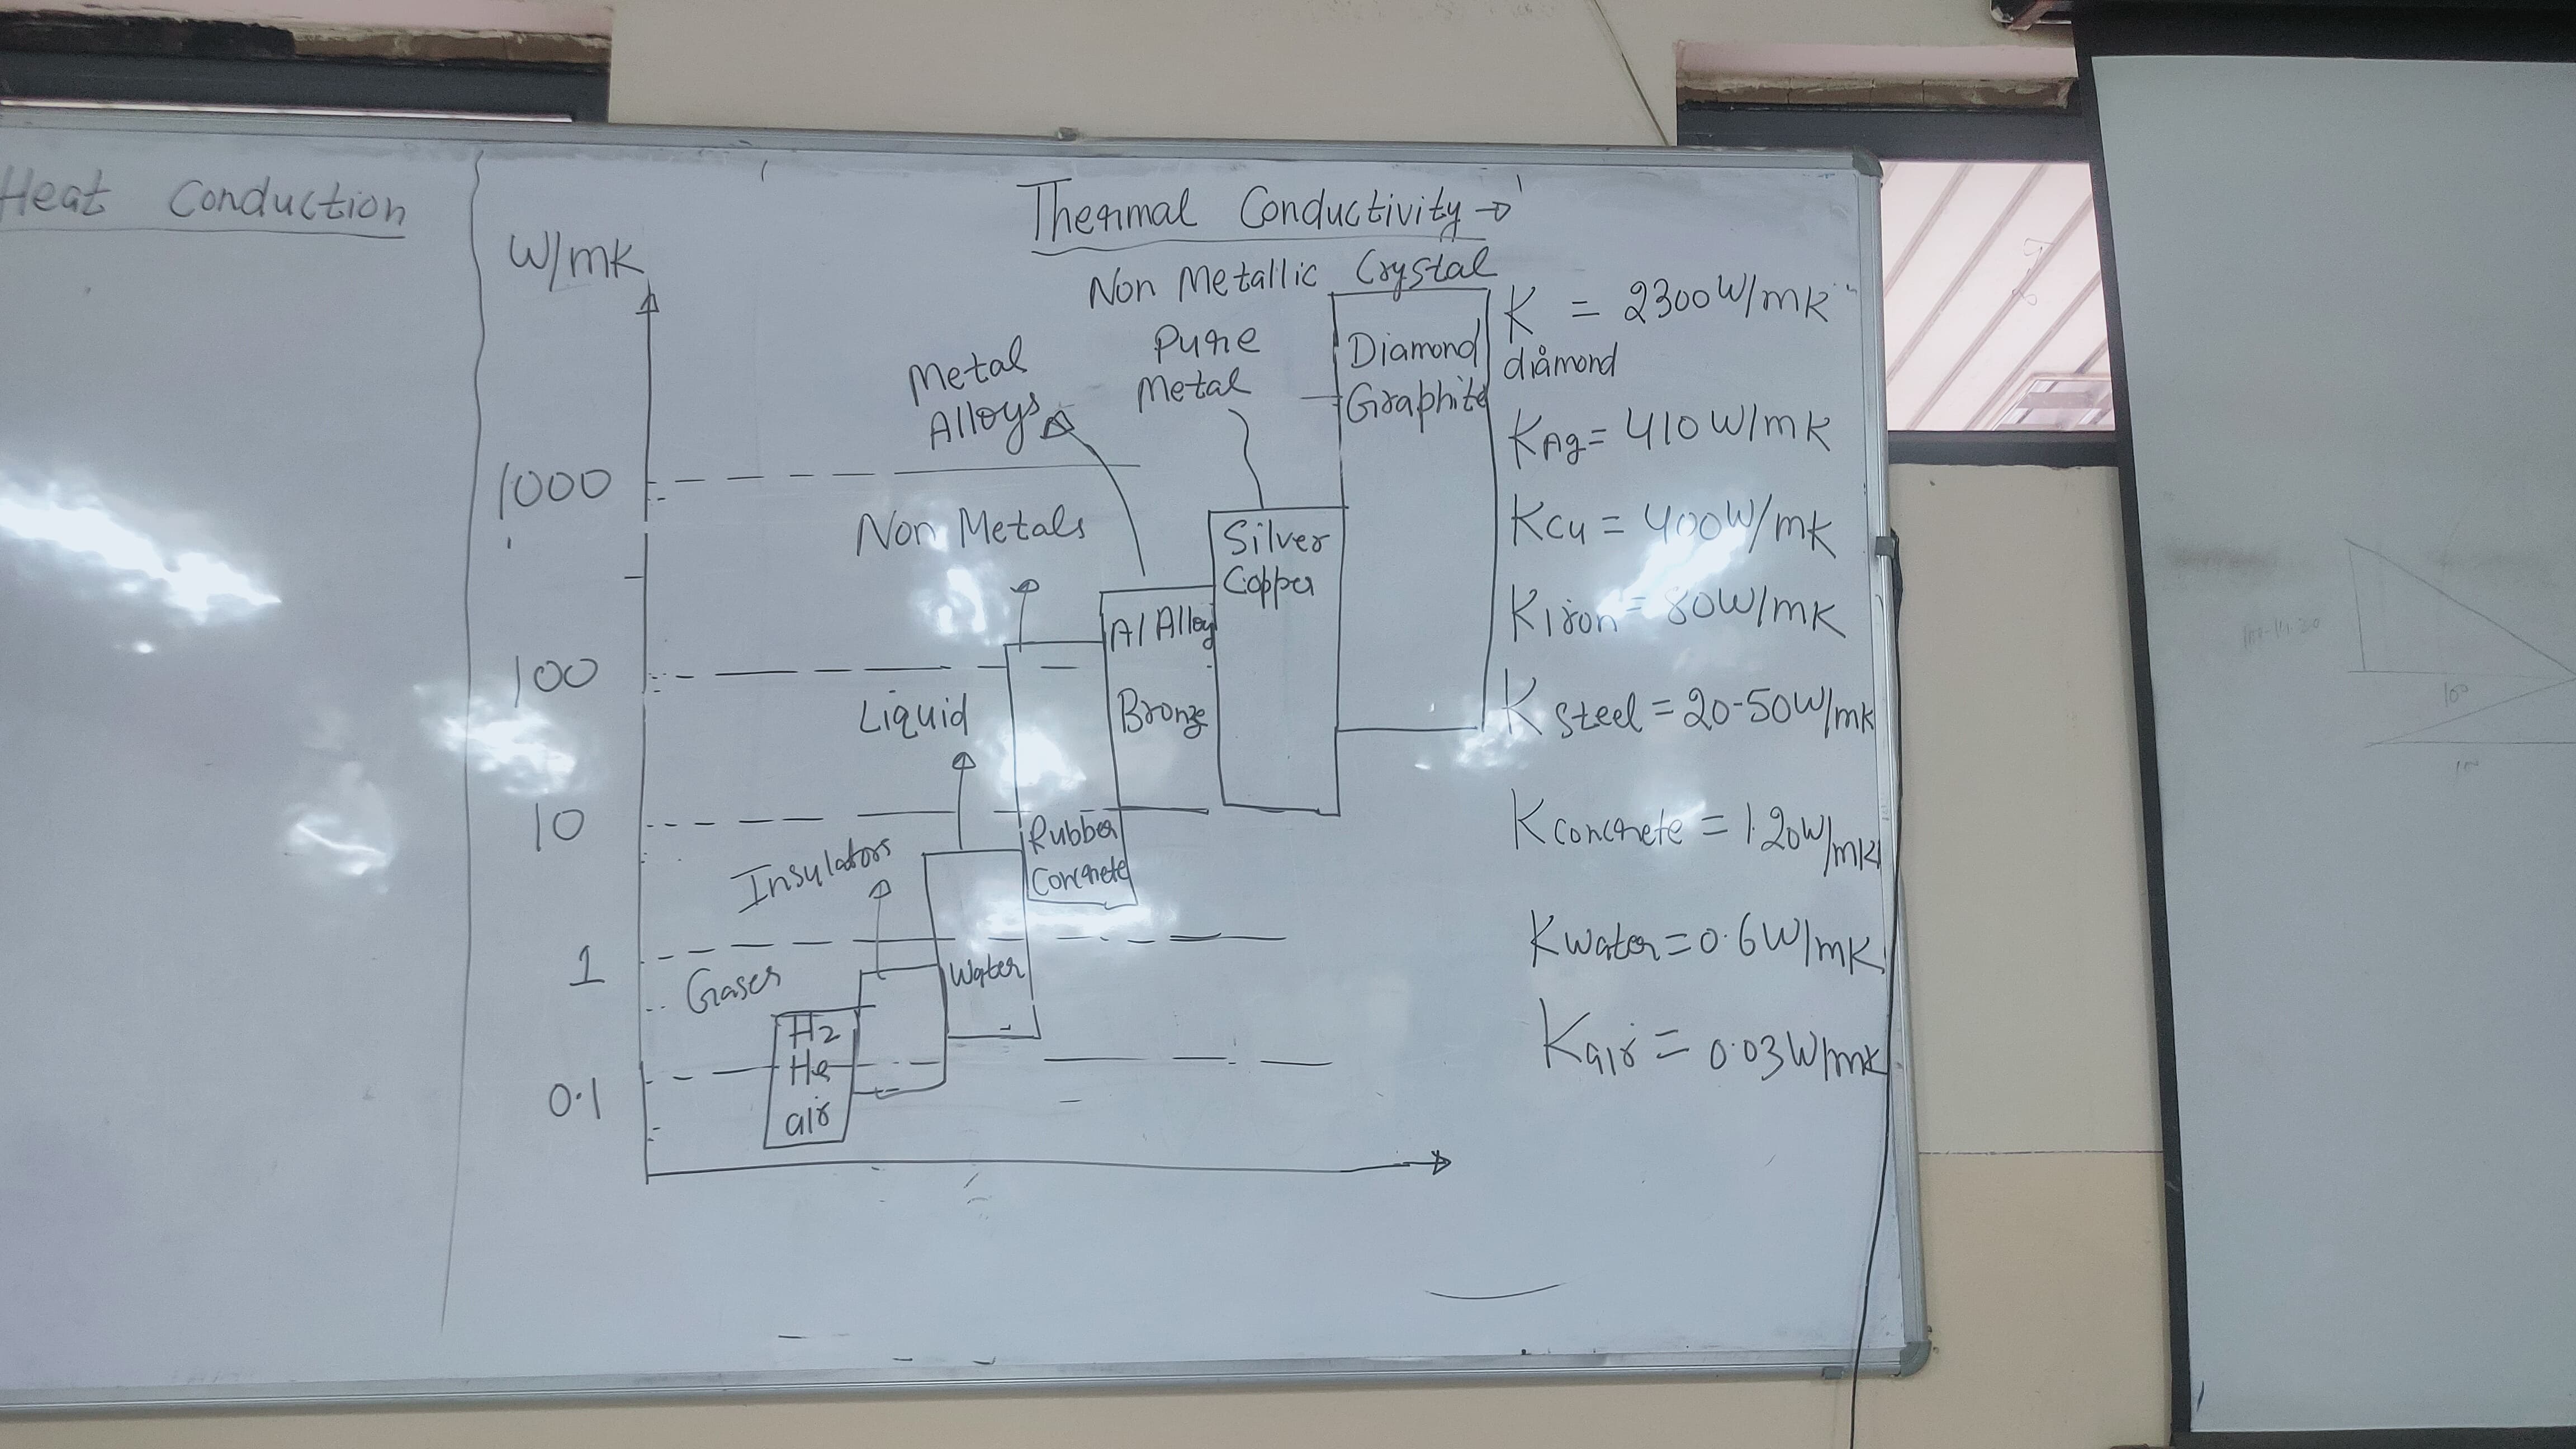 Heat Conduction
Thermal Conductivity →
W/mK
Non Metallic Crystal
Metal
Alloys
Pure
Metal
Diamond
Graphite
1000
Non Metals
Silver
Copper
Al Alloy
Bronze
100
Liquid
10
Rubber
Concrete
Insulators
1
Gases
Water
H2
He
air
0.1
K = 2300 W/mK
diamond
KAg = 410 W/mK
KCu = 400 W/mK
KIron = 80 W/mK
K steel = 20-50 W/mK
K concrete = 1.20 W/mK
K water = 0.6 W/mK
K air = 0.03 W/mK
10°